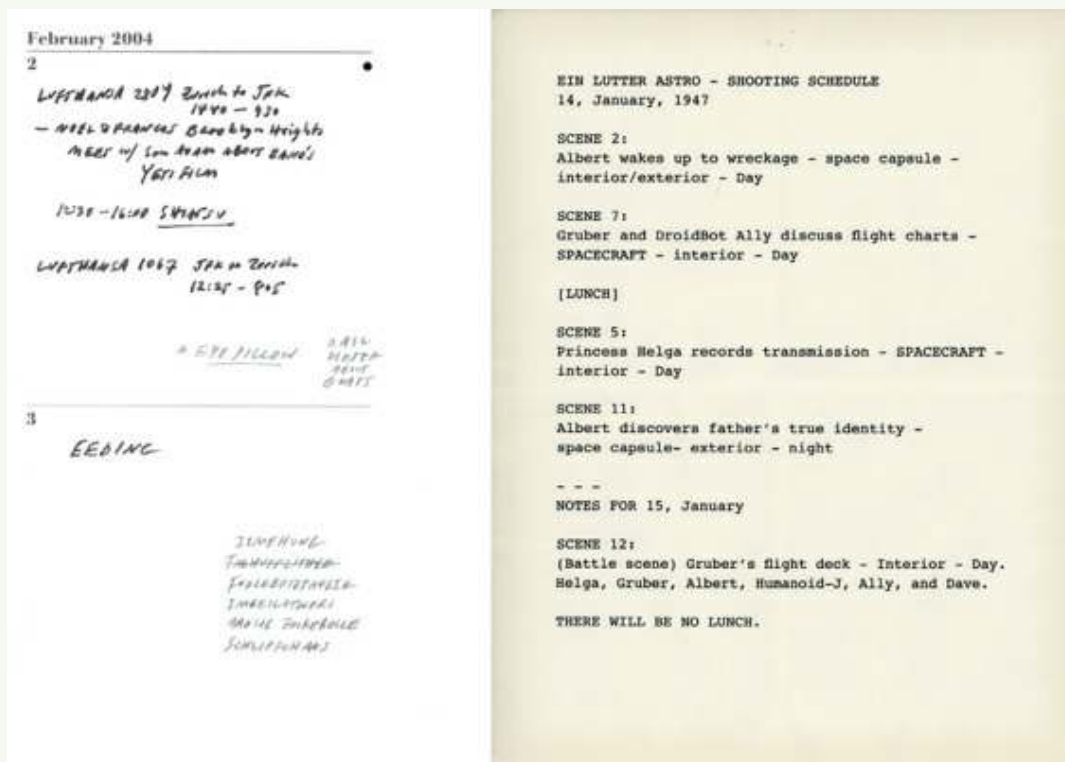 February 2004
2
LUFTHANSA Zurich to JFK
- NOEL & FRANCES Brooklyn Heights
MEET w/ Son ADAM ABOUT
YETI FILM
SHIATSU
LUFTHANSA 1067 JFK to Zurich
12:35 -
EYE PILLOW
3
EEDING
EIN LUTTER ASTRO - SHOOTING SCHEDULE
14, January, 1947
SCENE 2:
Albert wakes up to wreckage - space capsule -
interior/exterior - Day
SCENE 7:
Gruber and DroidBot Ally discuss flight charts -
SPACECRAFT - interior - Day
[LUNCH]
SCENE 5:
Princess Helga records transmission - SPACECRAFT -
interior - Day
SCENE 11:
Albert discovers father's true identity -
space capsule- exterior - night
- - -
NOTES FOR 15, January
SCENE 12:
(Battle scene) Gruber's flight deck - Interior - Day.
Helga, Gruber, Albert, Humanoid-J, Ally, and Dave.
THERE WILL BE NO LUNCH.